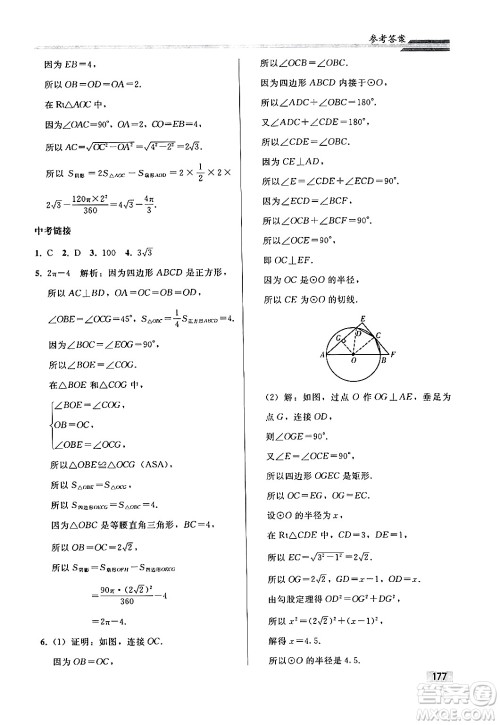 参考答案
因为∠AOF=4.
所以 OE=OA=2.
在 Rt△AOC 中,
因为∠CAO=90°, OC=4,
所以 AC=√OC²−OA²=√4²−2²=2√3
所以 S阴影=2S△AOC−S扇形AOD=2×1/2×2×
2√3−120π×2²/360=4√3−4π/3.
中考链接
1. C 2. D 3. 100 4. 3√3
5. 2π−4 解析:因为四边形 ABCD 是正方形,
所以 AC⊥BD, OB=OC,
∠OBE=∠OCG=45°, S△OBC=1/4S正方形ABCD=4.
因为∠BOC=∠EOG=90°,
所以∠BOE=∠COG.
在△BOE 与△COG 中,
∠BOE=∠COG,
OB=OC,
∠OBE=∠OCG,
所以△OBE≌△OCG (ASA),
所以 S△OBE=S△OCG,
所以 S四边形OECG=S△OBC=4.
因为△OBC 是等腰直角三角形, BC=4,
所以 OB=OC=2√2,
所以 S阴影=S扇形OFH−S四边形OECG
=90π×(2√2)²/360−4
=2π−4
6. (1) 证明:如图,连接 OC.
因为 OB=OC,
所以∠OCB=∠OBC.
因为四边形 ABCD 内接于⊙O,
所以∠ADC+∠OBC=180°.
又∠ADC+∠CDE=180°,
所以∠CDE=∠OBC.
因为 CE⊥AD,
所以∠E=∠CDE+∠ECD=90°.
因为∠ECD=∠BCF,
所以∠OCB+∠BCF=90°,
所以∠OCE=90°,
即 OC⊥EF.
因为 OC 是⊙O 的半径,
所以 CE 为⊙O 的切线.
A O B F
(2) 解:如图,过点 O 作 OG⊥AE,垂足为
点 G,连接 OD,
则∠OGE=90°.
又∠E=∠OCE=90°,
所以四边形 OGEC 是矩形.
所以 OC=EG, OG=EC.
设⊙O 的半径为 x,
在 Rt△CDE 中, CD=3, DE=1,
所以 EC=√3²−1²=2√2,
所以 OG=2√2, GD=x−1, OD=x,
由勾股定理得 OD²=OG²+DG²,
所以 x²=(2√2)²+(x−1)²,
解得 x=4.5,
所以⊙O 的半径是 4.5.
177